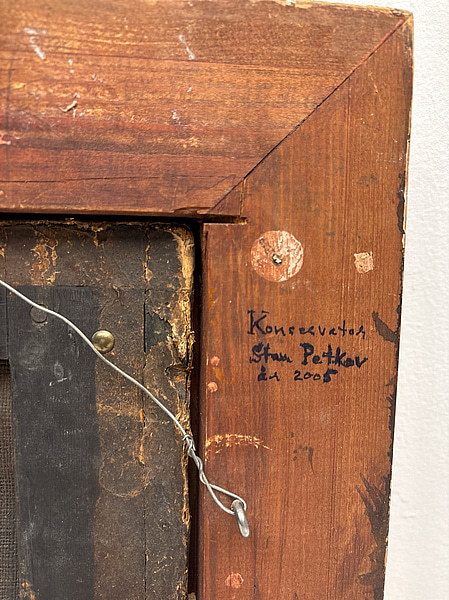 Koncervator
Stan Petkov
år 2005